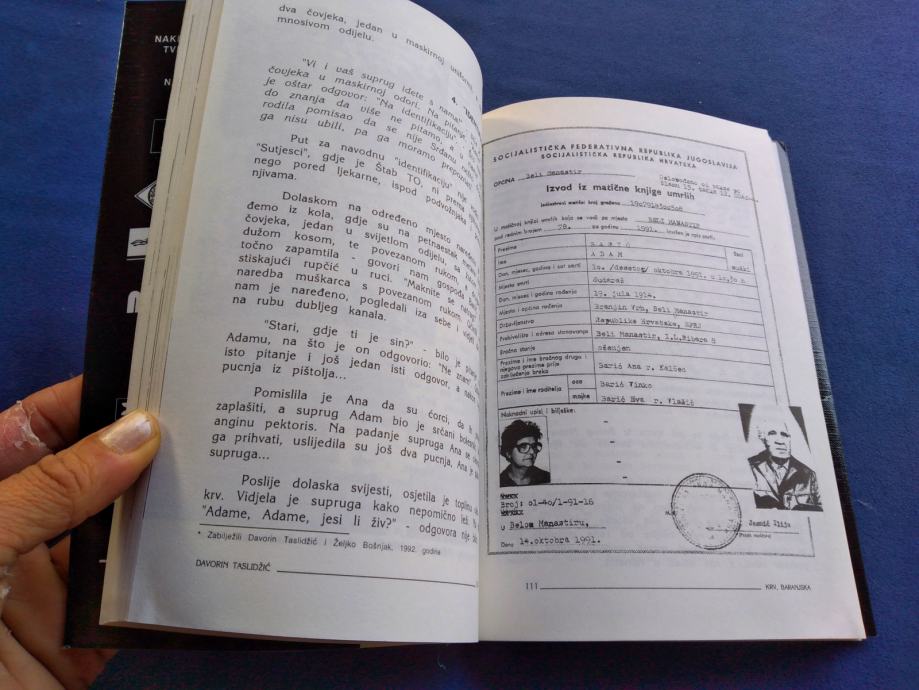 NAKL
TV
N
dva čovjeka, jedan u maskirnoj uniformi,
mnosivom odijelu.
4.
"Vi i vaš suprug idete s nama!"
čovjeka u maskirnoj odori. Na pitanje
je oštar odgovor: "Na identifikaciju"
do znanja da više ne pitamo, a
rodila pomisao da se nije Srđanu
ga nisu ubili, pa ga moramo prepoznati
Put za navodnu "identifikaciju" nije
"Sutjesci", gdje je Štab TO, ni prema
nego pored ljekarne, ispod podvožnjaka
njivama.
Dolaskom na određeno mjesto naređeno
đemo iz kola, gdje su na petnaestak metara
čovjeka, jedan u svijetlom odijelu, sa
dužom kosom, te povezanom rukom,
točno zapamtila - govori nam gospođa
stiskajući rupčić u ruci. "Maknite se
naredba muškarca s povezanom rukom.
nam je naređeno, pogledali iza sebe i vidjeli
na rubu dubljeg kanala.
"Stari, gdje ti je sin?" - bilo je pitanje
Adamu, na što je on odgovorio: "Ne znam!"
isto pitanje i još jedan isti odgovor, a
pucnja iz pištolja...
Pomislila je Ana da su ćorci, da ih
zaplašiti, a suprug Adam bio je srčani bolesnik
anginu pektoris. Na padanje supruga Ana se
ga prihvati, uslijedila su još dva pucnja, Ana je
supruga...
Poslije dolaska svijesti, osjetila je toplinu
krv. Vidjela je supruga kako nepomično leži.
"Adame, Adame, jesi li živ?" - odgovora nije
* Zabilježili Davorin Taslidžić i Željko Bošnjak, 1992. godine
DAVORIN TASLIDŽIĆ
SOCIJALISTIČKA FEDERATIVNA REPUBLIKA JUGOSLAVIJA
SOCIJALISTIČKA REPUBLIKA HRVATSKA
OPĆINA Beli Manastir
Oslobođeno od takse po
članu 13. tačka 11.
Izvod iz matične knjige umrlih
Jedinstveni matični broj građana
U matičnoj knjizi umrlih koja se vodi za mjesto BELI MANASTIR
pod rednim brojem 78. za godinu 1991. izvršen je upis smrti:
Prezime BARIĆ Spol
Ime ADAM muški
Dan, mjesec, godina i sat smrti 10. /desetog/ oktobra 1991. u 12,30 h
Mjesto smrti
Dan, mjesec i godina rođenja 19. jula 1914.
Mjesto i općina rođenja Branjin Vrh, Beli Manastir
Državljanstvo Republike Hrvatske, SFRJ
Prebivalište i adresa stanovanja Beli Manastir, I.L.Ribara 8
Bračno stanje oženjen
Prezime i ime bračnog druga i
njegovo prezime prije
zaključenja braka Barić Ana r. Kelšec
Prezime i ime roditelja oca Barić Vinko
majke Barić Eva r. Vlašić
Naknadni upisi i bilješke:
-
-
-
Broj: 01-40/1-91-16
U Belom Manastiru,
Dana 14.oktobra 1991.
M.P.
Jasnić Ilija
111
KRV, BARANJSKA